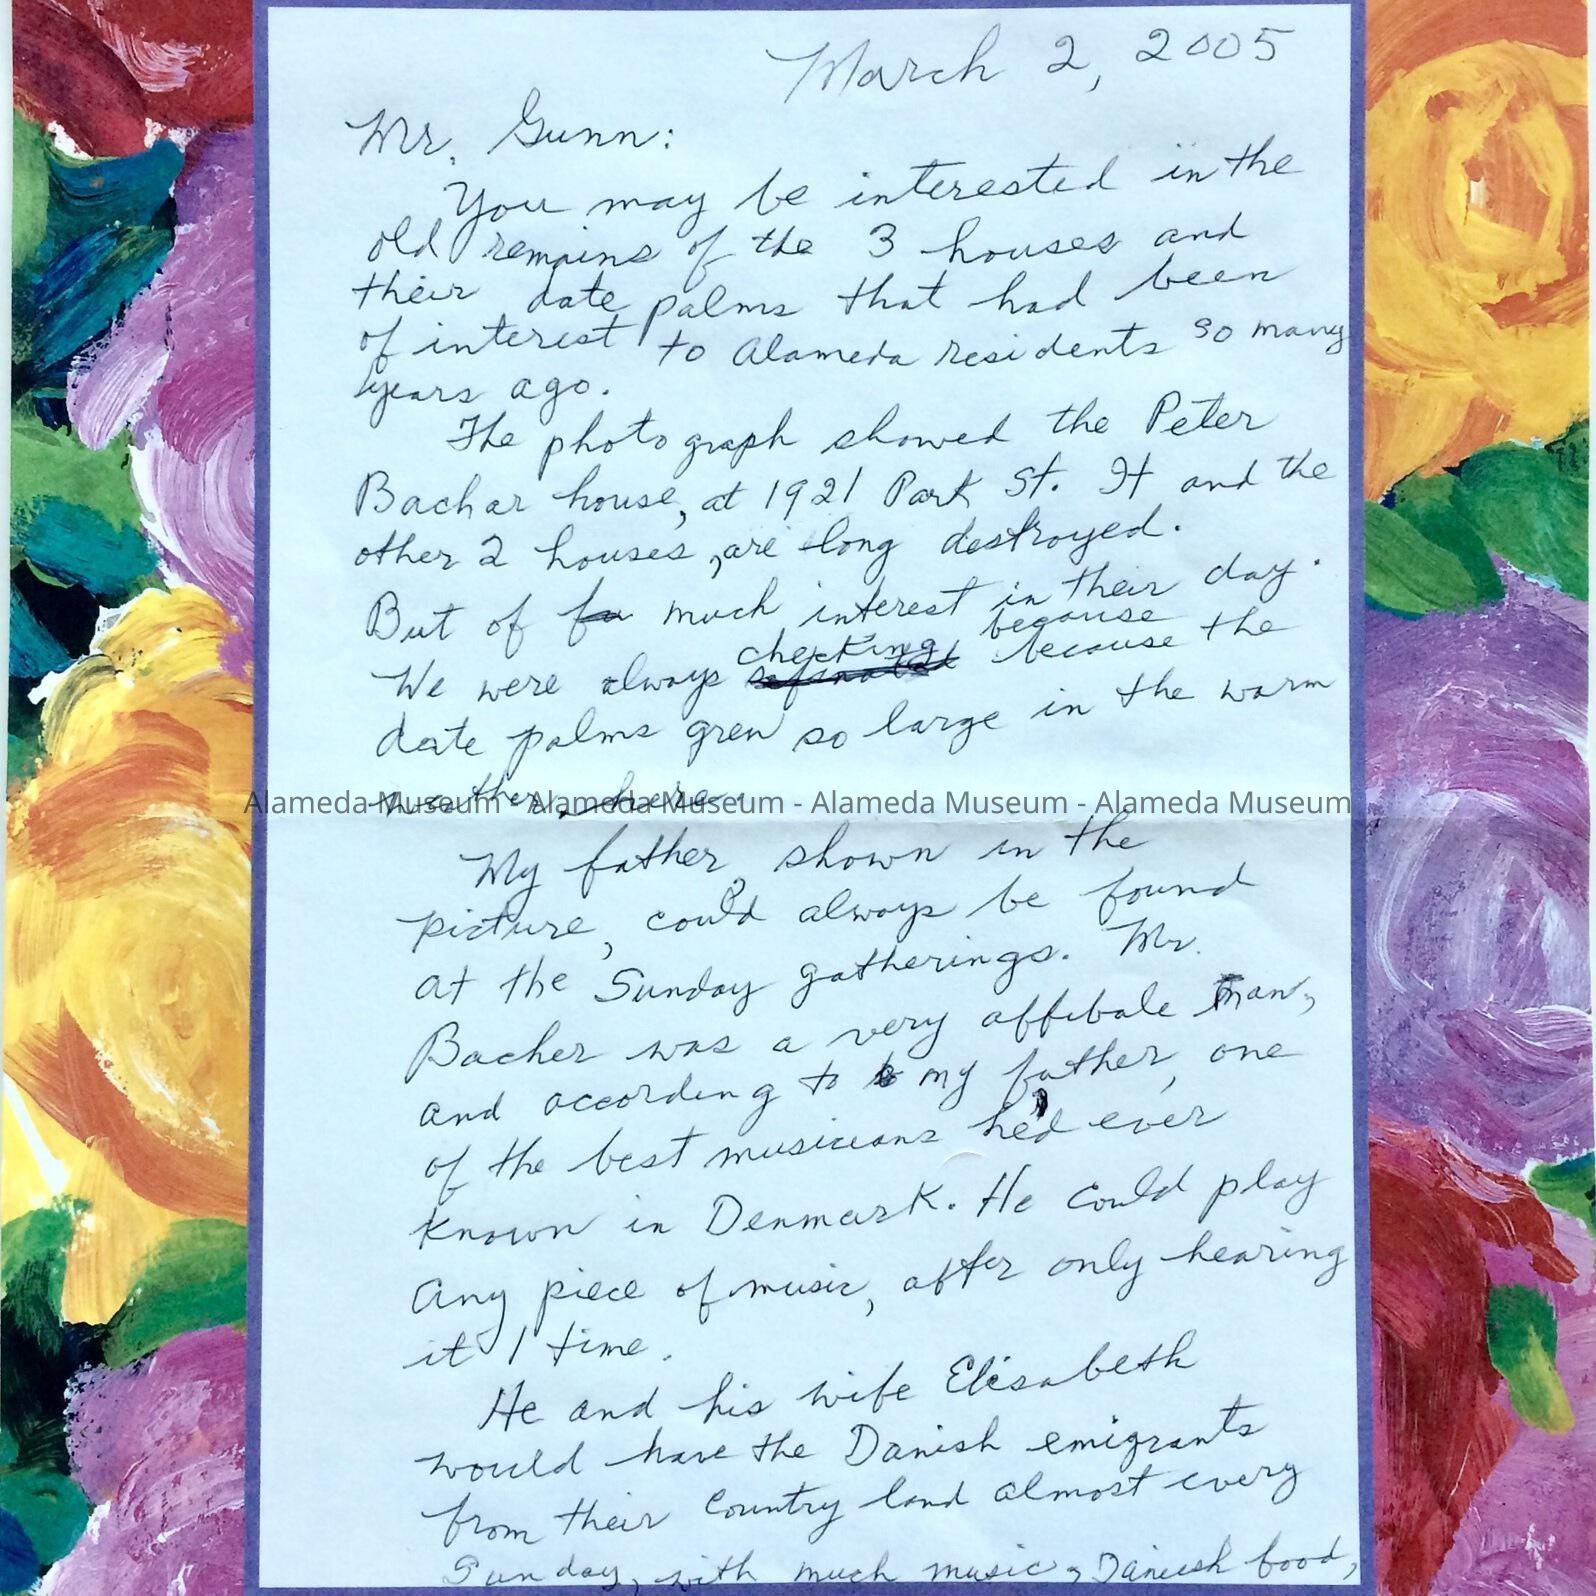 March 2, 2005
Mr. Gunn:
You may be interested in the
old remains of the 3 houses and
their date palms that had been
of interest to Alameda residents so many
years ago.
The photograph showed the Peter
Bachar house, at 1921 Park St. It and the
other 2 houses, are long destroyed.
But of much interest in their day.
We were always checking because because the
date palms grew so large in the warm
weather here.
Alameda Museum - Alameda Museum - Alameda Museum - Alameda Museum
My father, shown in the
picture, could always be found
at the Sunday gatherings. Mr.
Bacher was a very affibale man,
and according to my father, one
of the best musicians he'd ever
known in Denmark. He could play
any piece of music, after only hearing
it 1 time.
He and his wife Elisabeth
would have the Danish emigrants
from their Country land almost every
Sunday, with much music, Danish food,